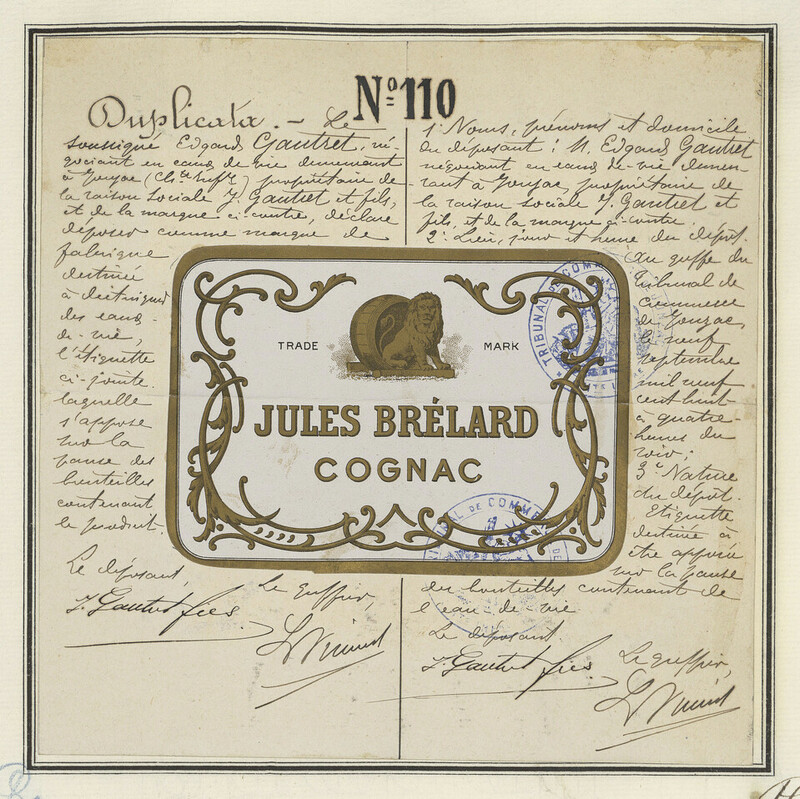 Nº 110
Duplicata. - Le
soussigné Edgard Gautret, né-
gociant en eaux de vie demeurant
à Jonzac (Chte Infre) propriétaire de
la raison sociale J. Gautret et fils,
et de la marque ci-contre, déclare
déposer comme marque de
fabrique
destinée
à distinguer
des eaux-
de-vie,
l'étiquette
ci-jointe
laquelle
s'appose
sur la
panse des
bouteilles
contenant
le produit.
Le déposant,
J. Gautret fils
Le greffier,
1º Noms, prénoms et domicile
du déposant : M. Edgard Gautret
négociant en eaux-de-vie demeu-
rant à Jonzac, propriétaire de
la raison sociale J. Gautret et
fils, et de la marque ci-contre.
2º Lieu, jour et heure du dépôt.
Au greffe du
tribunal de
commerce
de Jonzac,
le neuf
septembre
mil neuf
cent huit
à quatre
heures du
soir ;
3º Nature
du dépôt.
Etiquette
destinée à
être apposée
sur la panse
des bouteilles contenant de
l'eau-de-vie
Le déposant.
J. Gautret fils
Le greffier,
TRADE MARK
JULES BRÉLARD
COGNAC
TRIBUNAL DE COMMERCE
TRIBUNAL DE COMMERCE DE